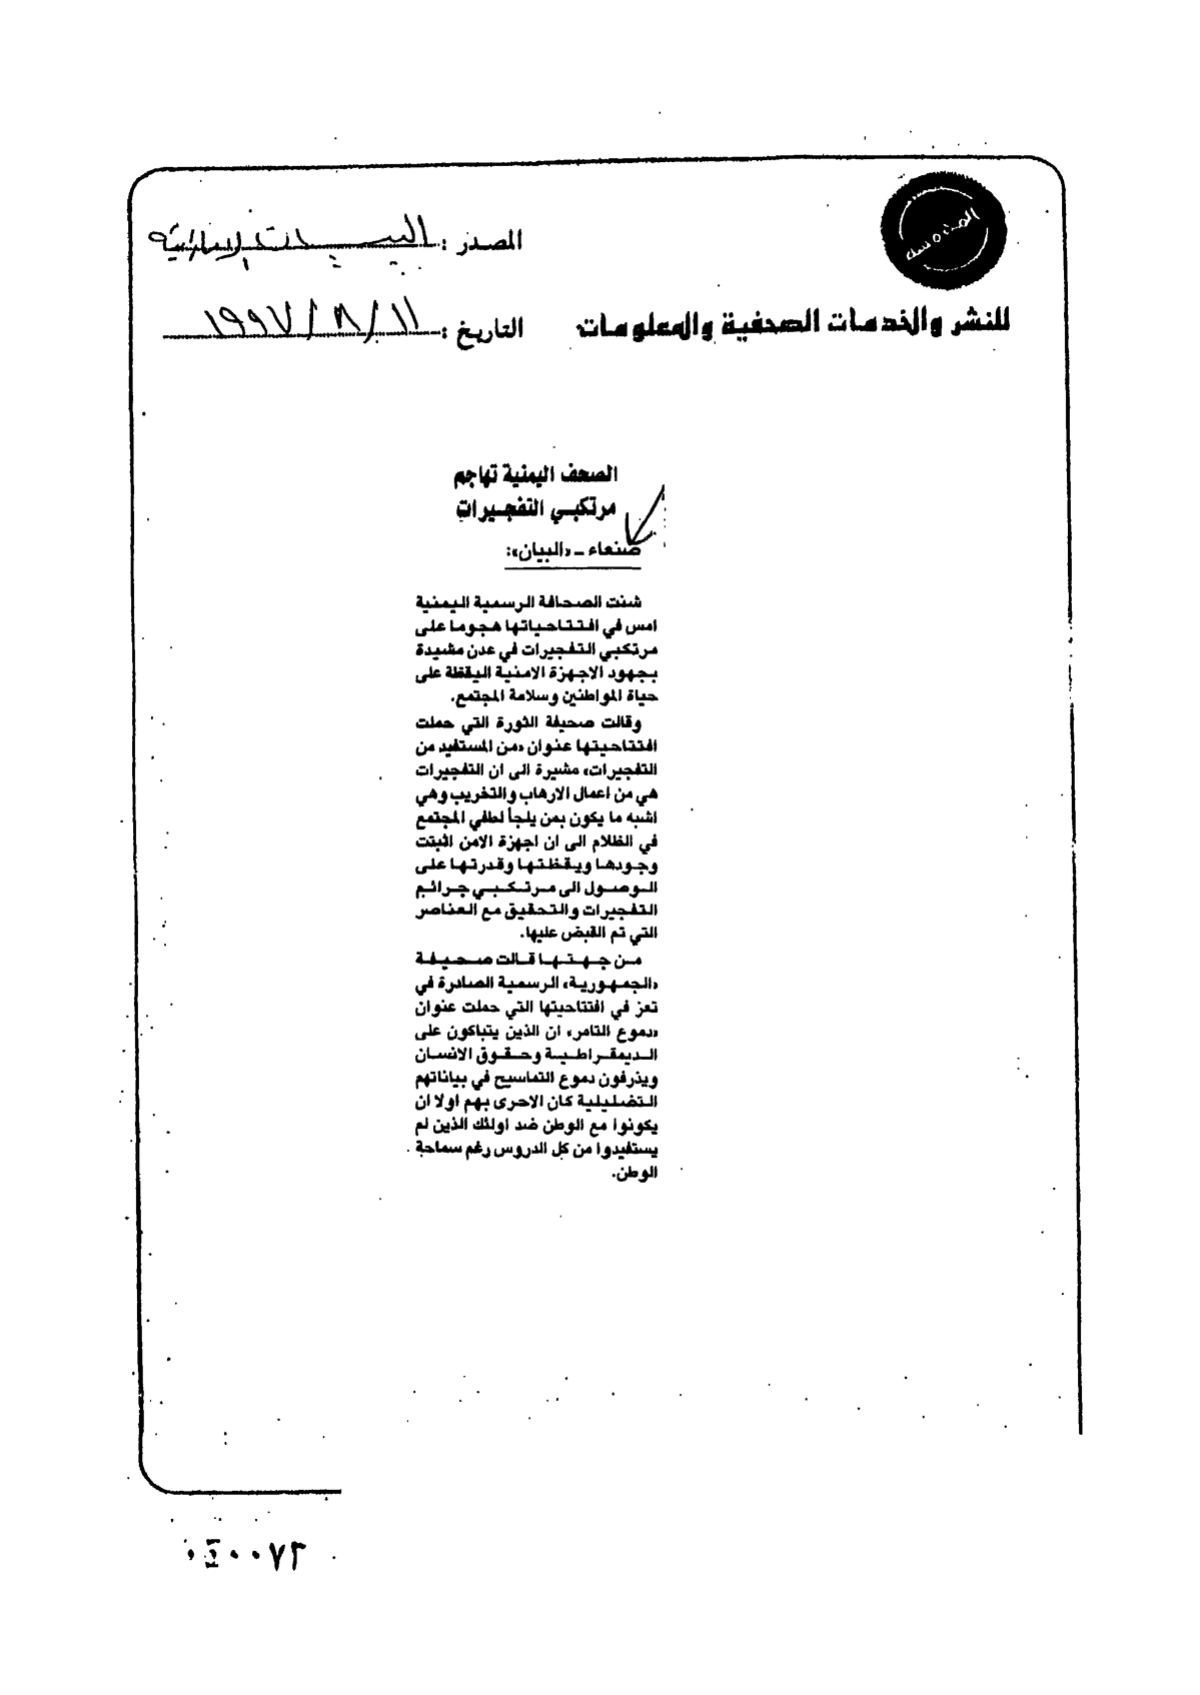 المصدر : البيان الإماراتية
للنشر والخدمات الصحفية والمعلومات
التاريخ : ١١/ ٨/ ١٩٩٧
الصحف اليمنية تهاجم
مرتكبي التفجيرات
صنعاء - «البيان»:
شنت الصحافة الرسمية اليمنية
امس في افتتاحياتها هجوما على
مرتكبي التفجيرات في عدن مشيدة
بجهود الاجهزة الامنية اليقظة على
حياة المواطنين وسلامة المجتمع.
وقالت صحيفة الثورة التي حملت
افتتاحيتها عنوان «من المستفيد من
التفجيرات» مشيرة الى ان التفجيرات
هي من اعمال الارهاب والتخريب وهي
اشبه ما يكون بمن يلجأ لطلفي المجتمع
في الظلام الى ان اجهزة الامن اثبتت
وجودها ويقظتها وقدرتها على
الوصول الى مرتكبي جرائم
التفجيرات والتحقيق مع العناصر
التي تم القبض عليها.
من جهتها قالت صحيفة
«الجمهورية» الرسمية الصادرة في
تعز في افتتاحيتها التي حملت عنوان
«دموع التامر» ان الذين يتباكون على
الديمقراطية وحقوق الانسان
ويذرفون دموع التماسيح في بياناتهم
التضليلية كان الاحرى بهم اولا ان
يكونوا مع الوطن ضد اولئك الذين لم
يستفيدوا من كل الدروس رغم سماحة
الوطن.